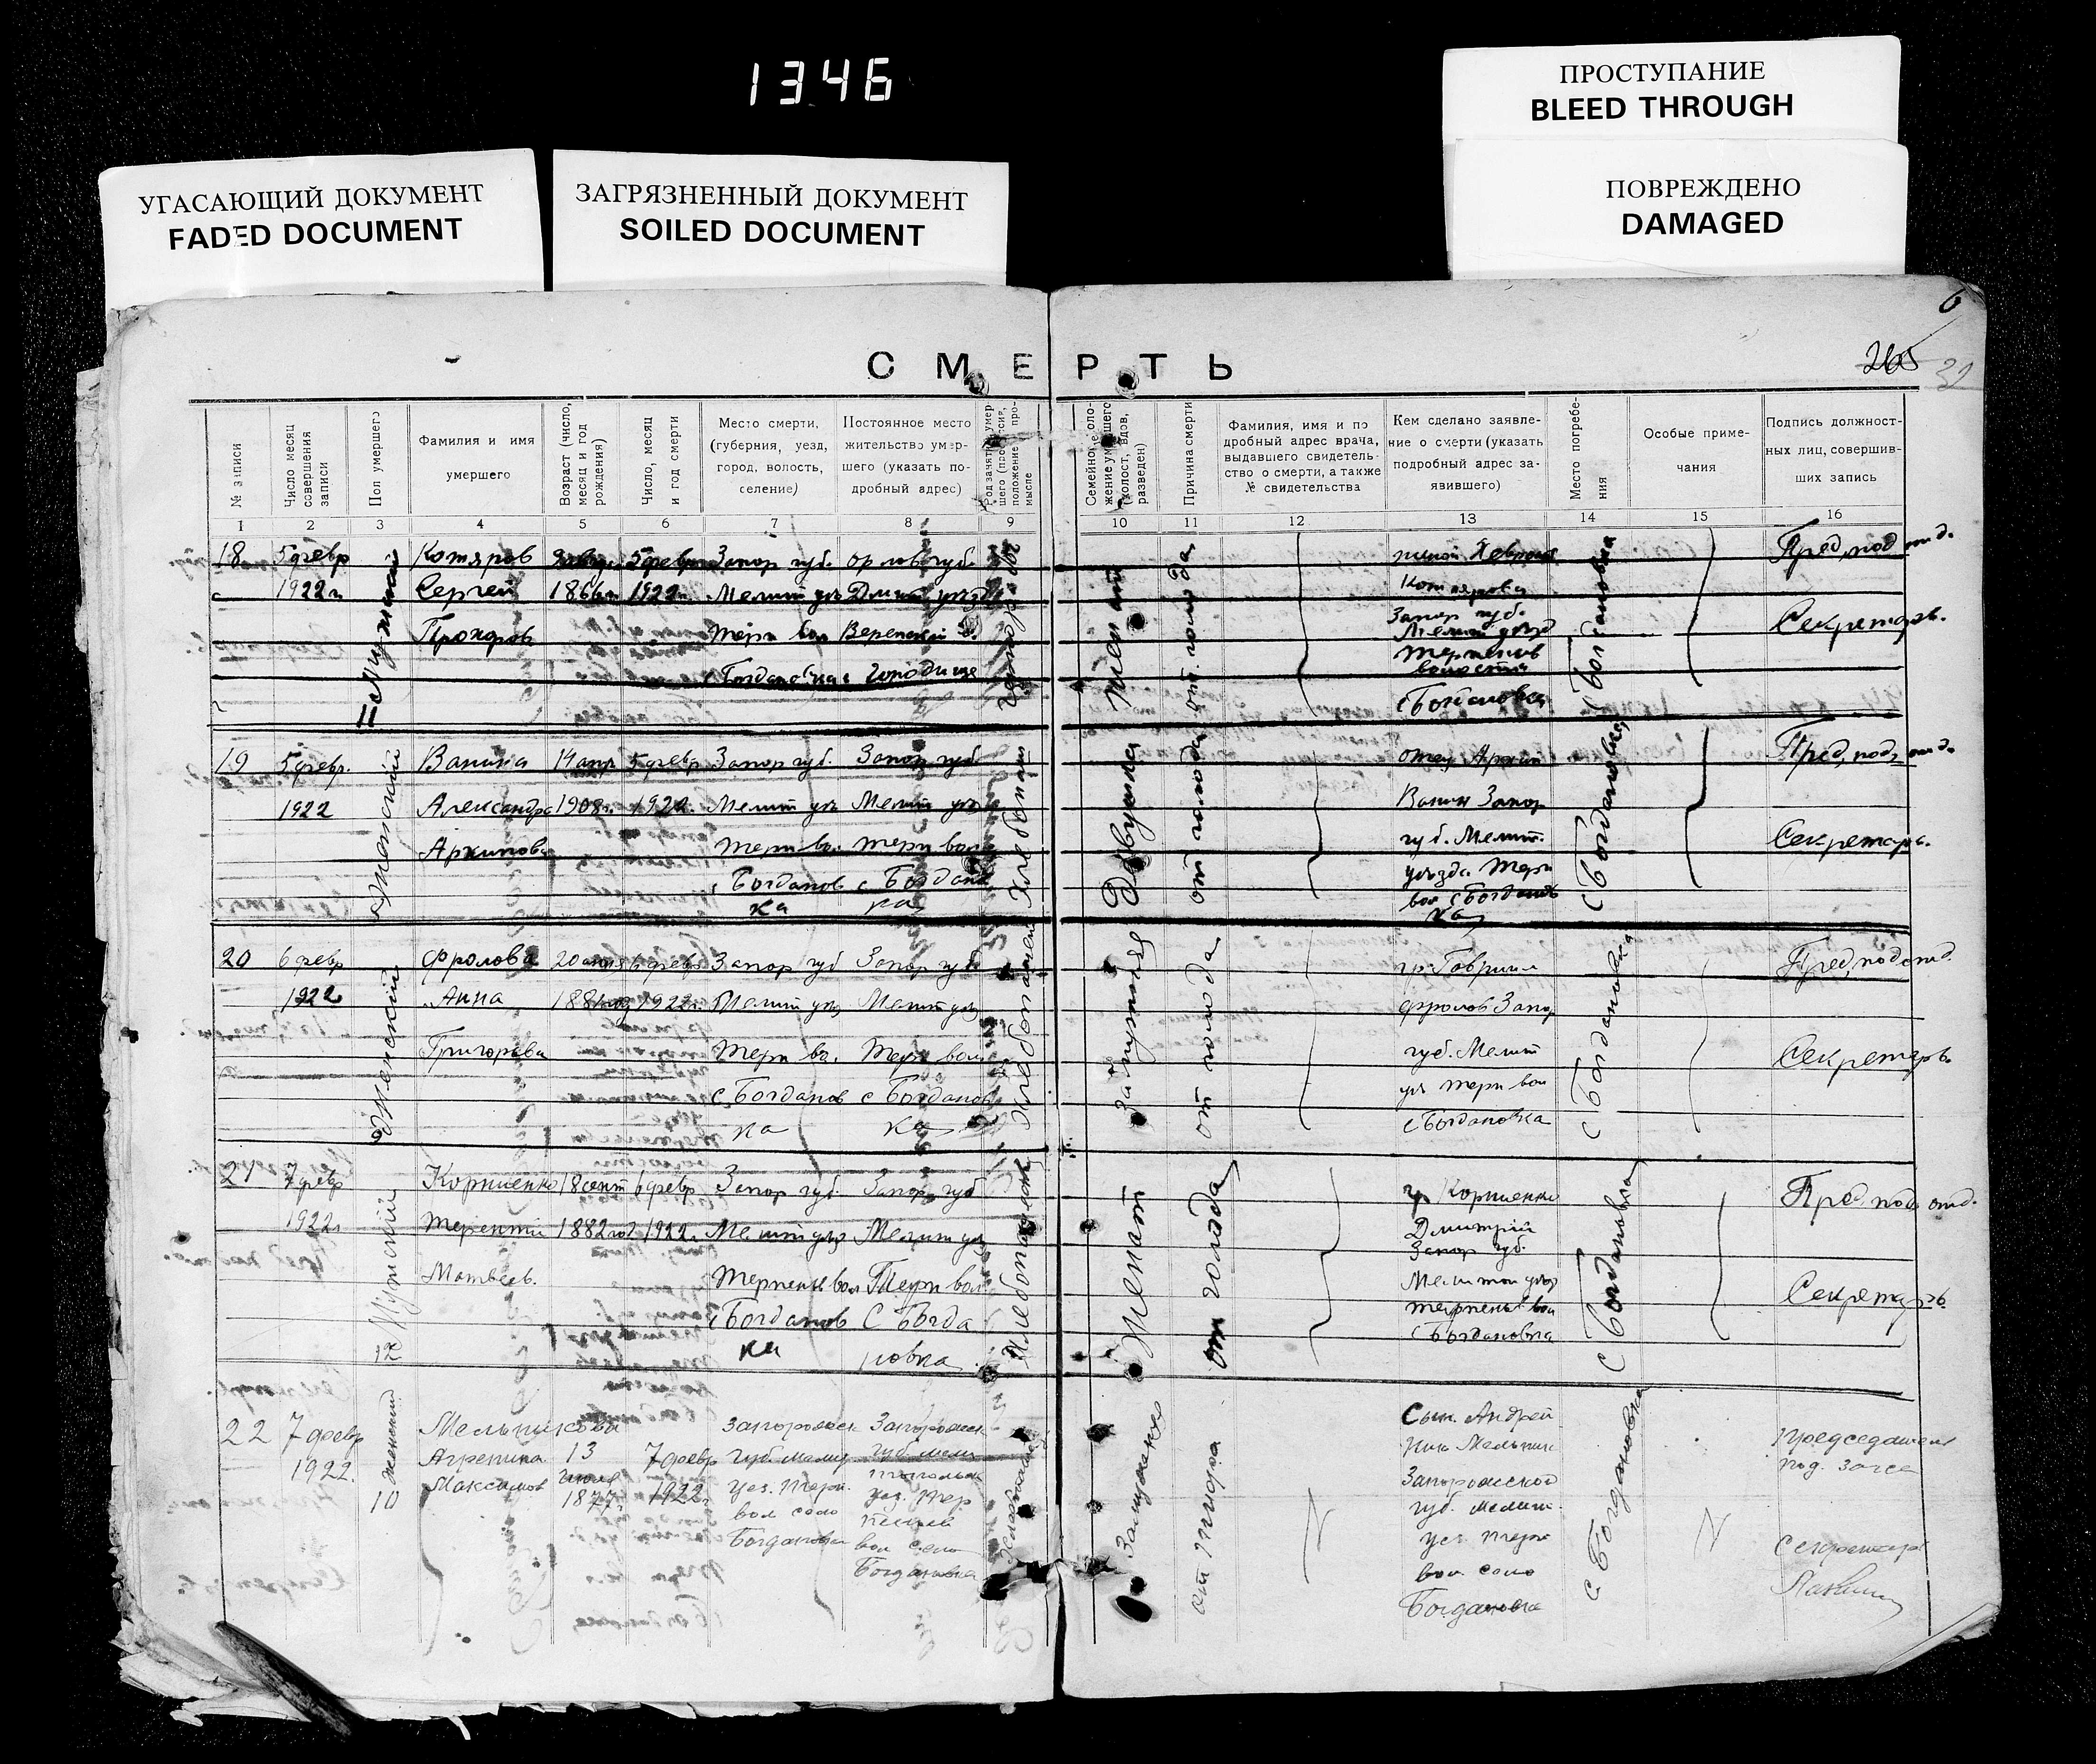 1346
ПРОСТУПАНИЕ
BLEED THROUGH
ПОВРЕЖДЕНО
DAMAGED
УГАСАЮЩИЙ ДОКУМЕНТ
FADED DOCUMENT
ЗАГРЯЗНЕННЫЙ ДОКУМЕНТ
SOILED DOCUMENT
6
265
32
СМЕРТЬ
№ записи
Число месяц
совершения
записи
Пол умершего
Фамилия и имя
умершего
Возраст (число,
месяц и год
рождения)
Число, месяц
и год смерти
Место смерти,
(губерния, уезд,
город, волость,
селение)
Постоянное место
жительство умер-
шего (указать по-
дробный адрес)
Род занятий умер-
шего (профессия,
положение в про-
мысле
Семейное поло-
жение умершего
(холост, вдов,
разведен)
Причина смерти
Фамилия, имя и по
дробный адрес врача,
выдавшего свидетель-
ство о смерти, а также
№ свидетельства
Кем сделано заявле-
ние о смерти (указать
подробный адрес за-
явившего)
Место погребе-
ния
Особые приме-
чания
Подпись должност-
ных лиц, совершив-
ших запись
1 2 3 4 5 6 7 8 9 10 11 12 13 14 15 16
18
5 февр
1922 г
Мужской
11
Котяров
Сергей
Прохоров
1866 г
5 февр
1922 г.
Запор губ.
Мелит уъ
Терп вол
с Богдановка
орлов губ.
Городище
Женат
от голода
женой
Котярова
Запор губ.
Мелит уъзд
Терпенъев
волости
с Богдановка
с Богдановка
Пред, под отд.
Секретарь.
19
5 февр.
1922
Женский
9
Ванина
Александра
Архипова
14 апр
1908 г.
5 февр
1922.
Запор губ.
Мелит уъ
Терп вол.
с Богданов
ка
Запор губ
Мелит уъ
терп вол
с Богданов
ка
Хлебопаш
Девушка
от голода
отец Архип
Ванин Запор
губ. Мелит.
уъзда Терп
вол с Богданов
ка
с Богдановка
Пред, под, отд.
Секретарь.
20
6 февр
1922
Женский
9
Фролова
Анна
Григорьева
6 февр
1922 г.
Запор губ
Мелит уъз
Терп во.
с Богданов
ка
Запор губ.
Мелит уъз
Терп вол
с Богданов
ка
Хлебопашец
Замужняя
от голода
гр. Гаврил
Фролов Запор
губ. Мелит
уъз терп вол
с Богдановка
с Богдановка
Пред, под отд.
Секретарь.
21
7 февр
1922 г
Мужской
12
Корниенко
Терентий
Матвеев.
18 сент
1882 год
6 февр
1922 г
Запор губ.
Мелит уъз
Терпеньев вол
с Богданов
ка
Запор губ
Мелит уъз
Терп вол
С Богда
новка
Хлебопашец
Женат
от голода
гр Корниенко
Дмитрий
Запор губ.
Мелитоп уъзд
терпеньев вол
с Богдановка
с Богдановка
Пред. под отд.
Секретарь
22
7 февр
1922.
женский
10
Мельникова
Агрепина
Максимов
13
июля
1877 г
7 февр
1922 г
Запорожск
губ мелит
уез. терп.
вол село
Богдановка
Запорожск
губ мели
топольск
уез. Тер
пеньев
вол село
Богдановка
Замужняя
от голода
Сын. Андрей
Запорожской
губ. мелит.
уез терп
вол. село
Богдановка
с Богдановка
председатель
под. загса
секретарь